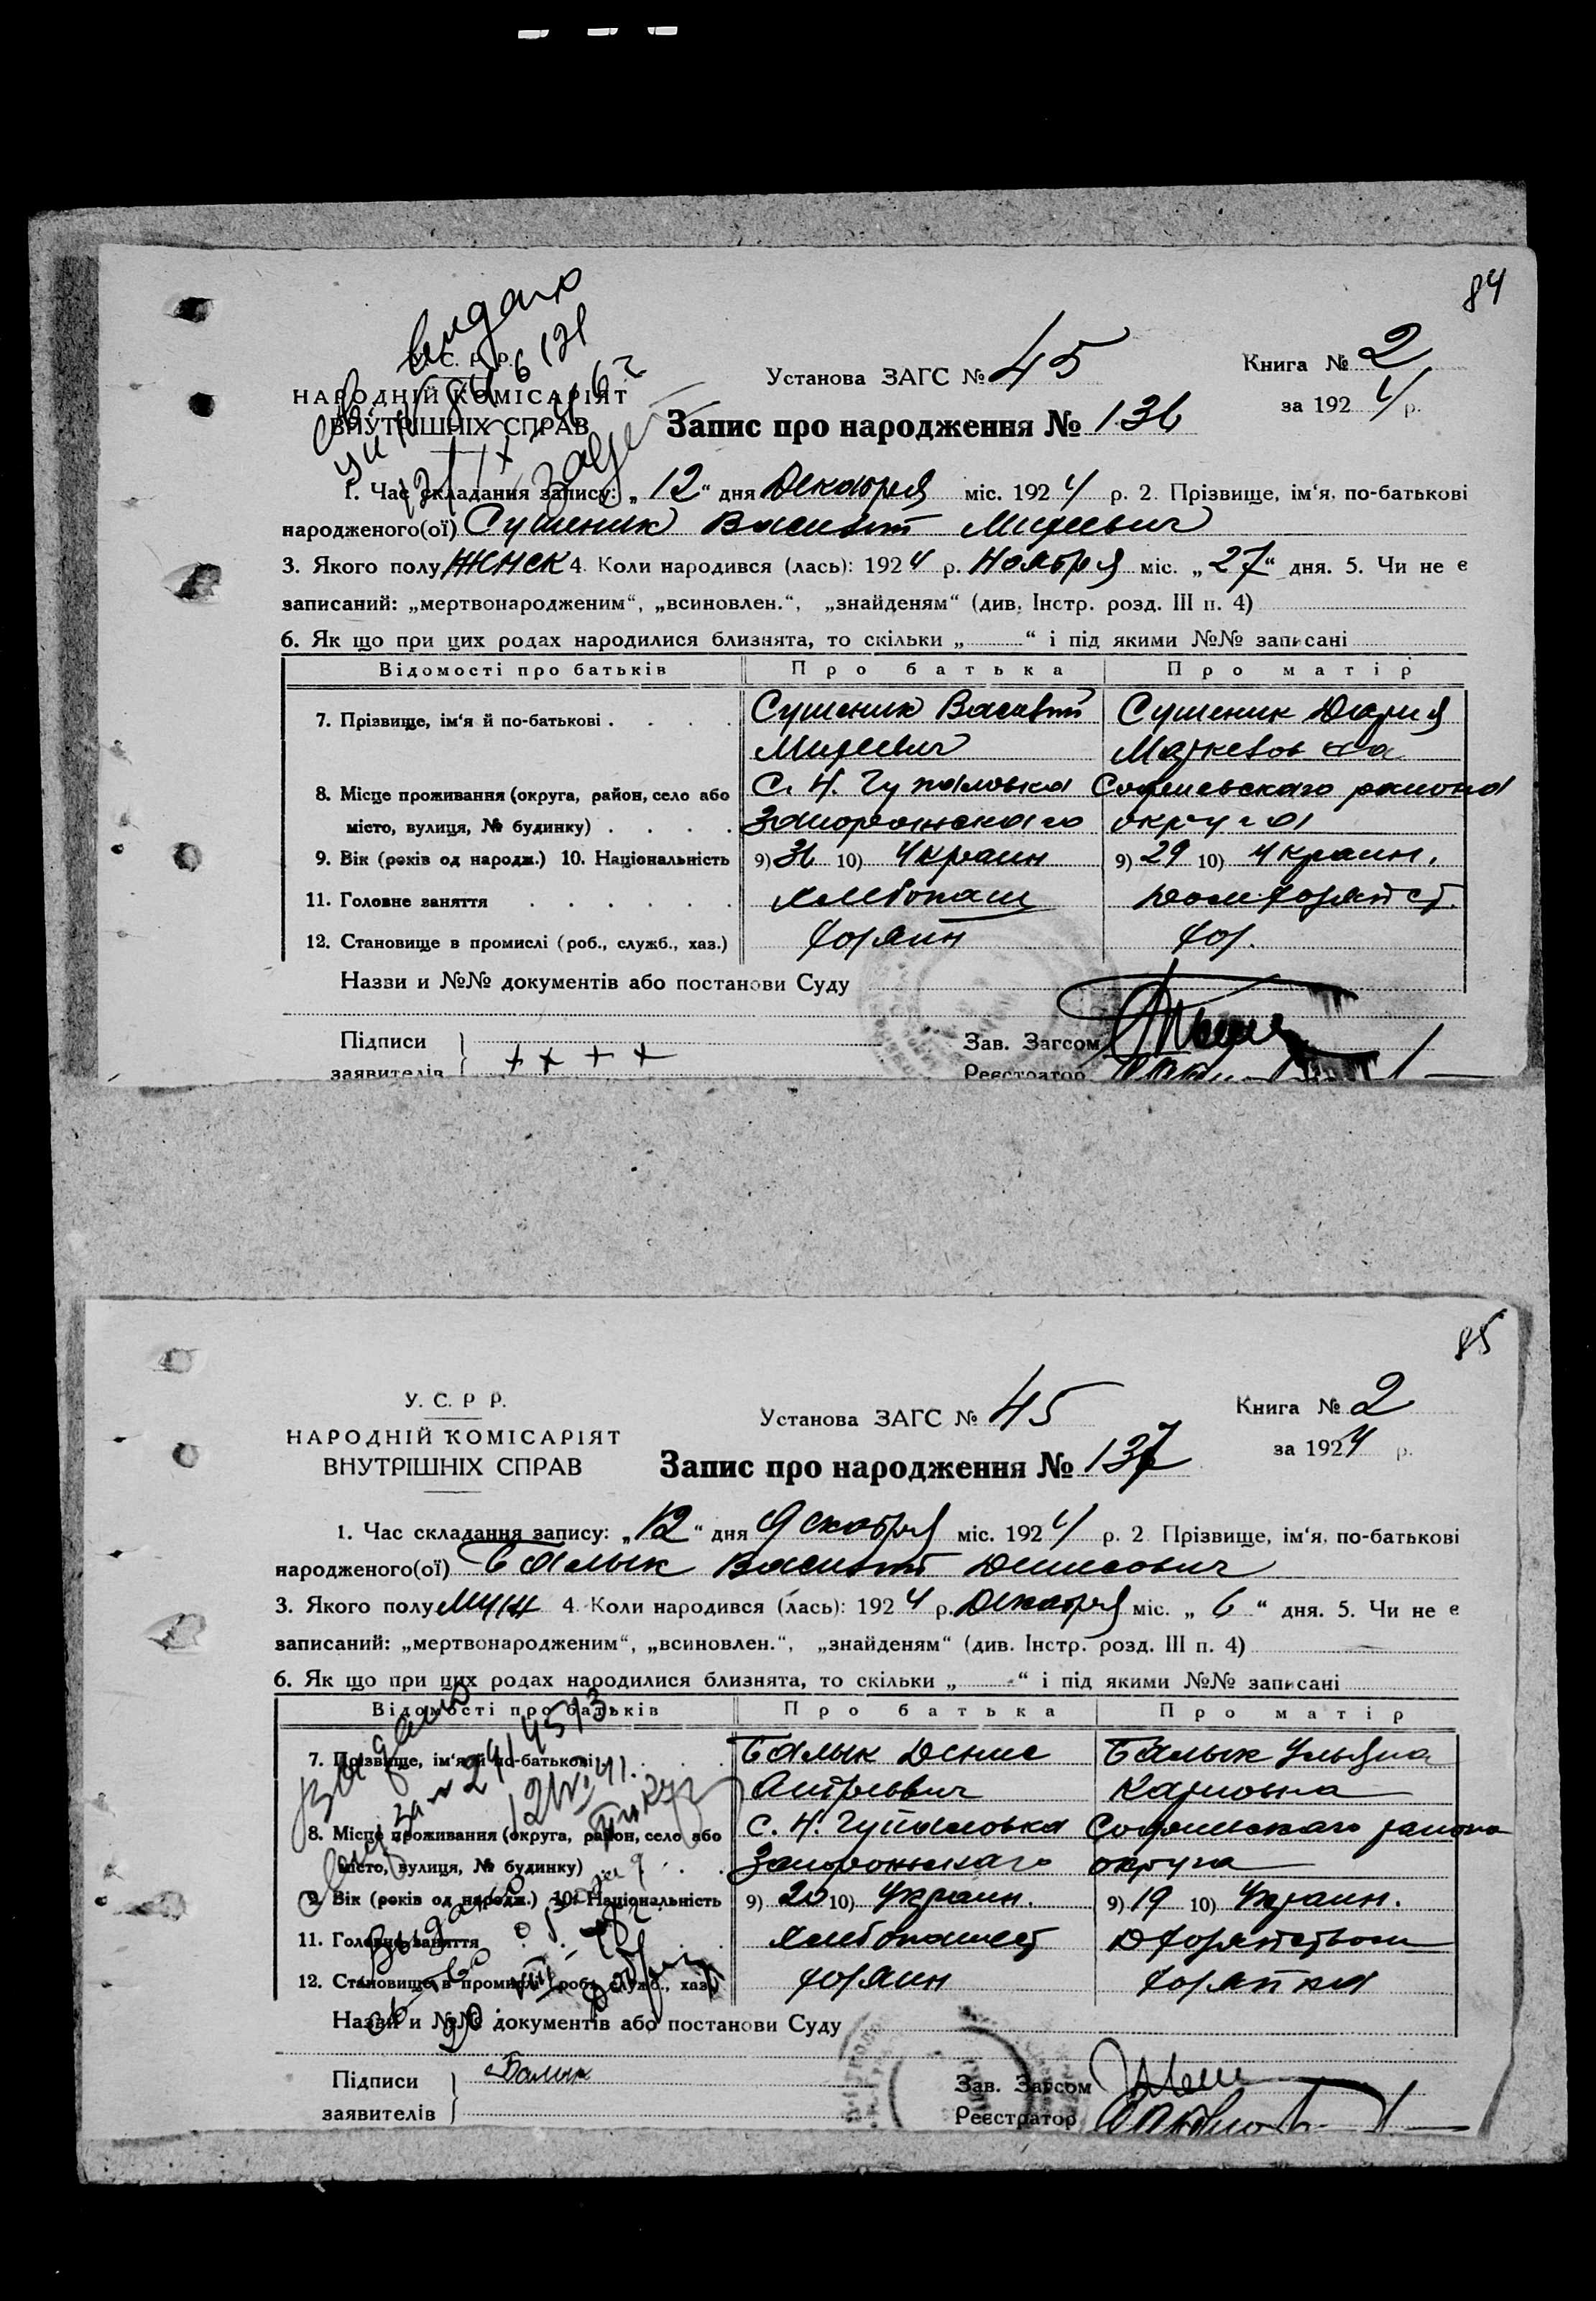 84
видано
У. С. Р. Р.
НАРОДНІЙ КОМІСАРІЯТ
ВНУТРІШНІХ СПРАВ
Установа ЗАГС № 45
Книга № 2
за 1924 р.
Запис про народження № 136
1. Час складання запису: „12“ дня Декабря міс. 1924 р. 2. Прізвище, ім‘я, по-батькові
народженого(ої) Сушеник Василий
3. Якого полу 4. Коли народився (лась): 1924 р. Ноября міс. „27“ дня. 5. Чи не є
записаний: „мертвонародженим“, „всиновлен.“, „знайденям“ (див. Інстр. розд. III п. 4)
6. Як що при цих родах народилися близнята, то скільки „ “ і під якими №№ записані
Відомості про батьків Про батька Про матір
7. Прізвище, ім‘я й по-батькові . . . . Сушеник Василий Сушеник Дария
8. Місце проживання (округа, район, село або С. Н. Гупаловка Софиевского района
місто, вулиця, № будинку) . . . . Запорожского округа
9. Вік (років од народж.) 10. Національність 9) 36 10) Украин 9) 29 10) Украин.
11. Головне заняття . . . . . . хлебопаш
12. Становище в промислі (роб., служб., хаз.) хозяин хоз.
Назви и №№ документів або постанови Суду
Підписи
заявителів
+ + + +
Зав. Загсом
Реєстратор
85
У. С. Р Р.
НАРОДНІЙ КОМІСАРІЯТ
ВНУТРІШНІХ СПРАВ
Установа ЗАГС № 45
Книга № 2
за 1924 р.
Запис про народження № 137
1. Час складання запису: „12“ дня Декабря міс. 1924 р. 2. Прізвище, ім‘я, по-батькові
народженого(ої) Балык Василий Денисович
3. Якого полу муж 4. Коли народився (лась): 1924 р. Декабря міс. „6“ дня. 5. Чи не є
записаний: „мертвонародженим“, „всиновлен.“, „знайденям“ (див. Інстр. розд. III п. 4)
6. Як що при цих родах народилися близнята, то скільки „ “ і під якими №№ записані
Відомості про батьків Про батька Про матір
7. Прізвище, ім‘я й по-батькові . . . . Балык Денис Балык Ульяна
Карповна
8. Місце проживання (округа, район, село або С. Н. Гупаловка Софиевского района
місто, вулиця, № будинку) . . . . Запорожскаго округа
9. Вік (років од народж.) 10. Національність 9) 20 10) Украин. 9) 19 10) Украин.
11. Головне заняття
12. Становище в промислі (роб., служб., хаз.) хозяин хозяйка
Назви и №№ документів або постанови Суду
Підписи
заявителів
Балык
Зав. Загсом
Реєстратор